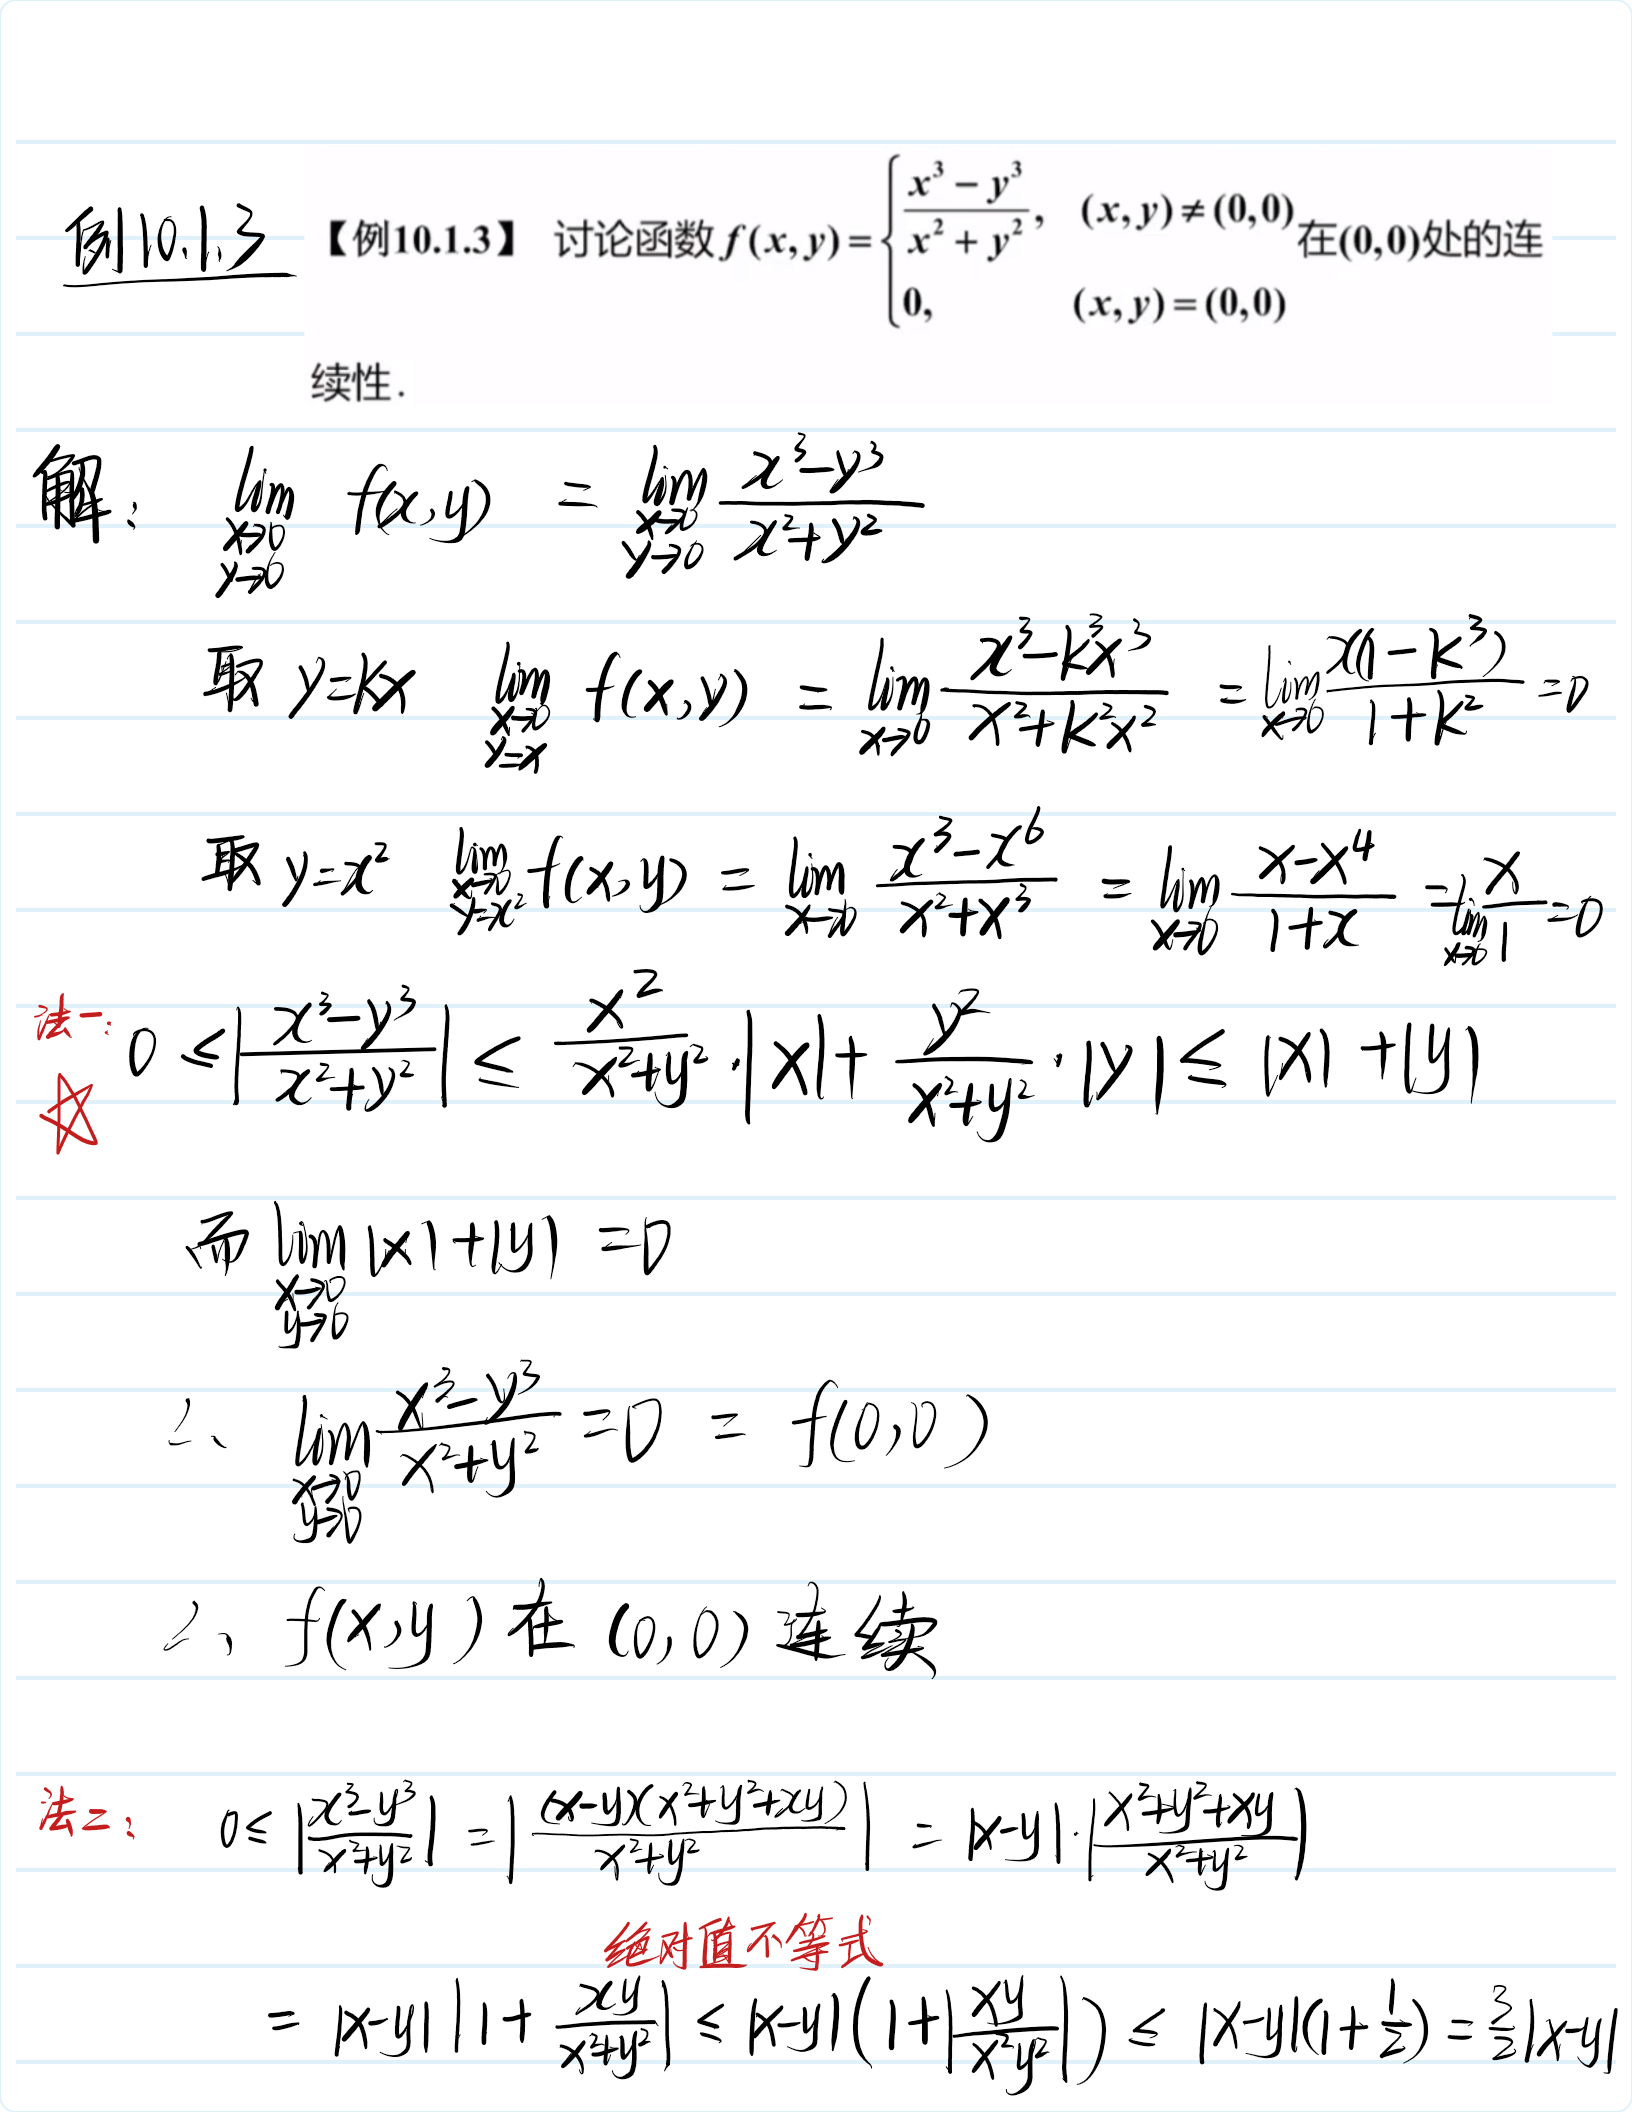 例10.1.3 【例10.1.3】 讨论函数 f(x,y) = { (x³ − y³)/(x² + y²), (x,y) ≠ (0,0) 在(0,0)处的连
0, (x,y) = (0,0)
续性.
解: lim_{x→0 y→0} f(x,y) = lim_{x→0 y→0} (x³−y³)/(x²+y²)
取 y=kx lim_{x→0 y=x} f(x,y) = lim_{x→0} (x³−k³x³)/(x²+k²x²) = lim_{x→0} x(1−k³)/(1+k²) =0
取 y=x² lim_{x→0 y=x²} f(x,y) = lim_{x→0} (x³−x⁶)/(x²+x³) = lim_{x→0} (x−x⁴)/(1+x) = lim_{x→0} x/1 =0
法一: 0 ≤ |(x³−y³)/(x²+y²)| ≤ x²/(x²+y²)·|x| + y²/(x²+y²)·|y| ≤ |x|+|y|
☆
而 lim_{x→0 y→0} |x|+|y| =0
∴ lim_{x→0 y→0} (x³−y³)/(x²+y²) =0 = f(0,0)
∴ f(x,y) 在 (0,0) 连续
法二: 0≤ |(x³−y³)/(x²+y²)| = |(x−y)(x²+y²+xy)/(x²+y²)| = |x−y|·|(x²+y²+xy)/(x²+y²)|
绝对值不等式
= |x−y| |1+ xy/(x²+y²)| ≤ |x−y|(1+|xy/(x²y²)|) ≤ |x−y|(1+1/2) = 3/2|x−y|